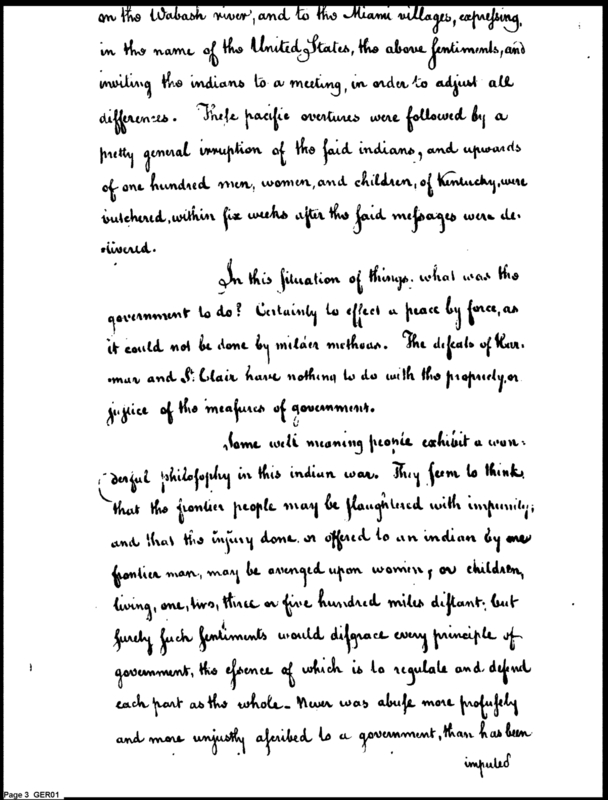 on the Wabash river, and to the Miami villages, expressing,
in the name of the United States, the above sentiments, and
inviting the indians to a meeting, in order to adjust all
differences. These pacific overtures were followed by a
pretty general irruption of the said indians, and upwards
of one hundred men, women, and children, of Kentucky, were
butchered, within six weeks after the said messages were de-
-livered.
In this situation of things. what was the
government to do? Certainly to effect a peace by force, as
it could not be done by milder methods. The defeats of Har-
mar and St. Clair have nothing to do with the propriety, or
justice of the measures of government.
Some well meaning people exhibit a won-
derful philosophy in this indian war. They seem to think
that the frontier people may be slaughtered with impunity;
and that the injury done or offered to an indian by one
frontier man, may be avenged upon women, or children,
living, one, two, three or five hundred miles distant; but
surely such sentiments would disgrace every principle of
government, the essence of which is to regulate and defend
each part as the whole - Never was abuse more profusely
and more unjustly ascribed to a government, than has been
imputed
Page 3 GER01